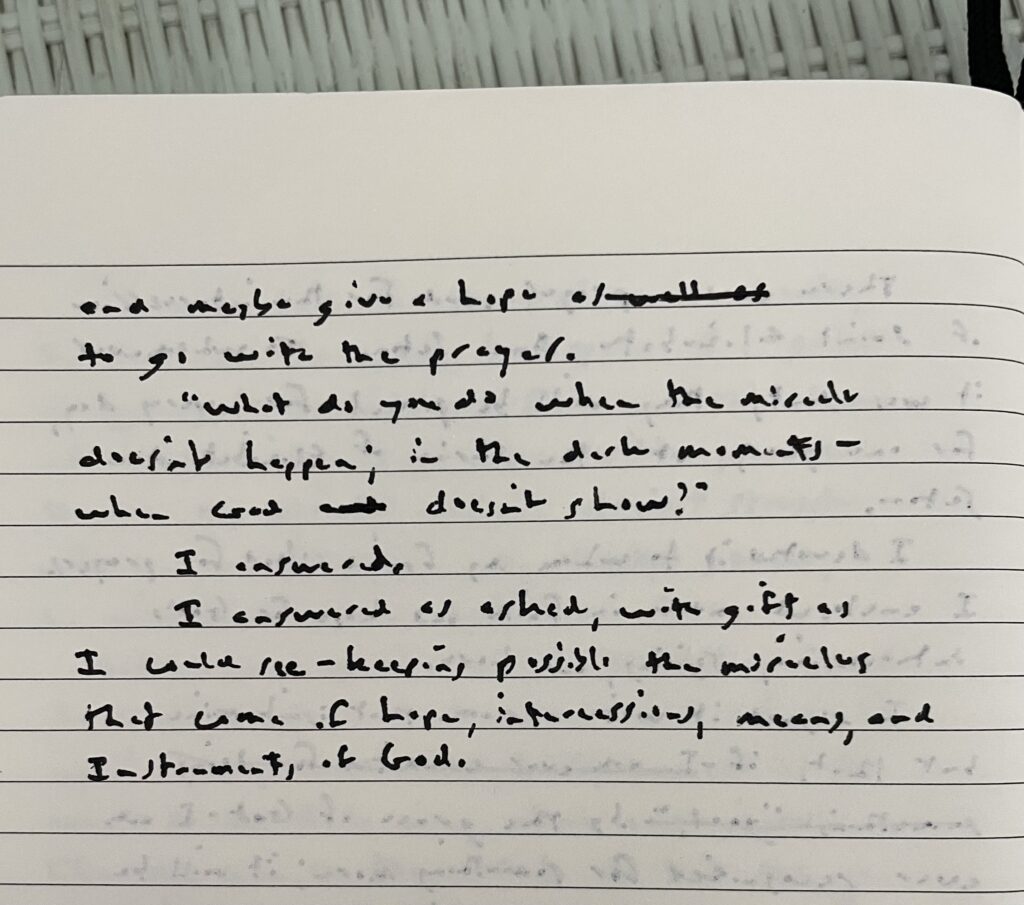 and maybe give a hope as well as
to go with the prayer.
"what do you do when the miracle
doesn't happen; in the dark moments –
when God doesn't show?"
I answered.
I answered as asked, with gift as
I could see – keeping possible the miracles
that come of hope, intercessions, means, and
Instruments of God.